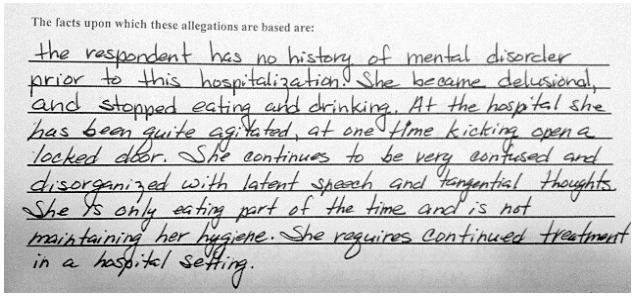 The facts upon which these allegations are based are:
the respondent has no history of mental disorder
prior to this hospitalization. She became delusional,
and stopped eating and drinking. At the hospital she
has been quite agitated, at one time kicking open a
locked door. She continues to be very confused and
disorganized with latent speech and tangential thoughts.
She is only eating part of the time and is not
maintaining her hygiene. She requires continued treatment
in a hospital setting.